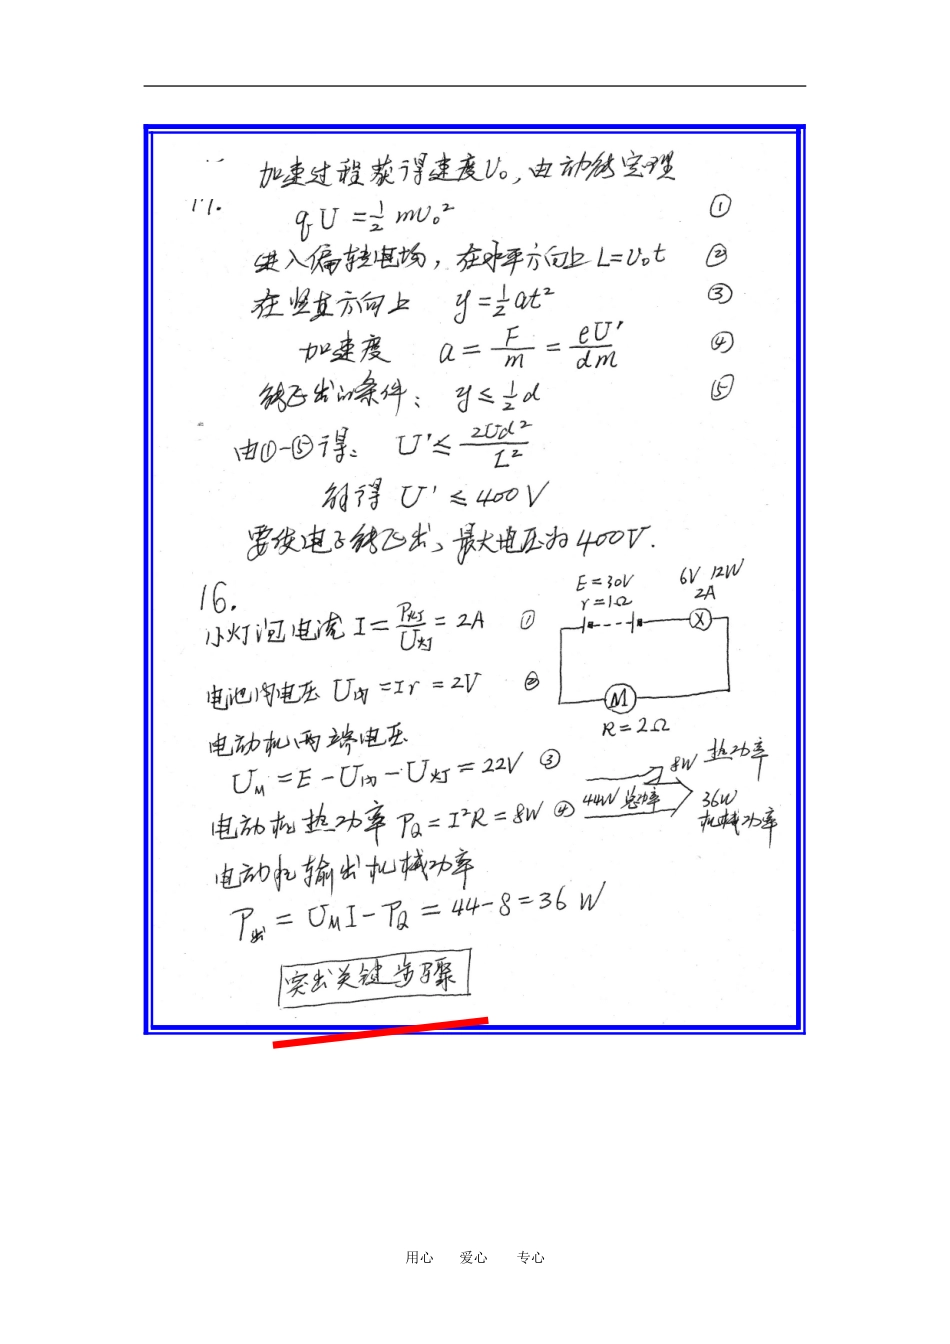 加速过程获得速度υ₀,由动能定理
17.
qU=½mυ₀² ①
进入偏转电场,在水平方向上 L=υ₀t ②
在竖直方向上 y=½at² ③
加速度 a=F/m=eU'/dm ④
能飞出的条件: y≤½d ⑤
由①-⑤得: U'≤2Ud²/L²
解得 U'≤400V
要使电子能飞出,最大电压为400V.
16.
E=30V
r=1Ω
6V 12W
2A
小灯泡电流 I=P灯/U灯=2A ①
电池内电压 U内=Ir=2V ②
M
R=2Ω
电动机两端电压
U_M=E-U内-U灯=22V ③
8W 热功率
44W 总功率
36W
机械功率
电动机热功率 P_Q=I²R=8W ④
电动机输出机械功率
P出=U_MI-P_Q=44-8=36W
突出关键步骤
用心 爱心 专心